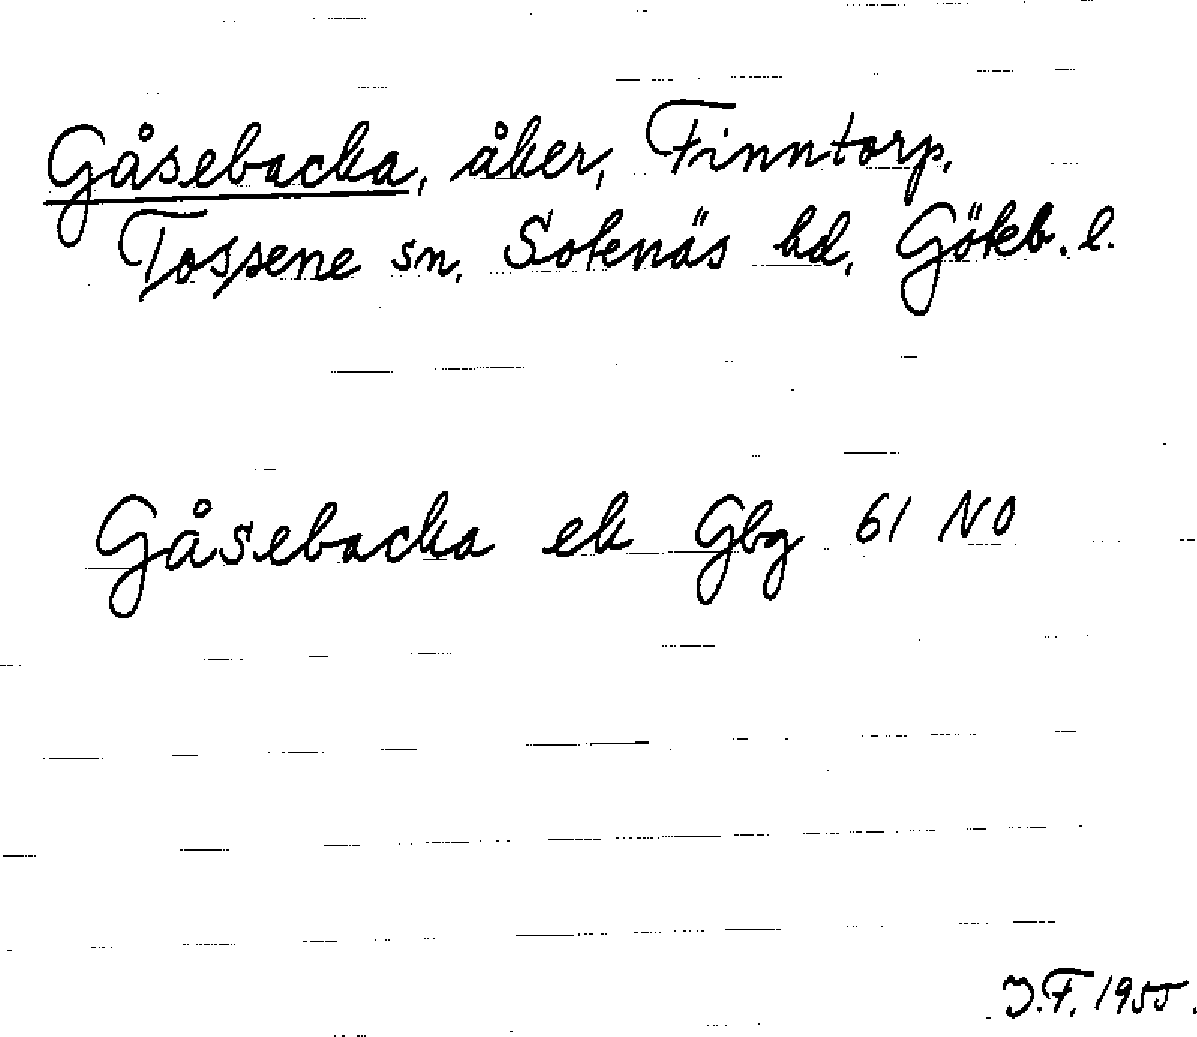 Gåsebacka, åker, Finntorp,
Tossene sn, Sotenäs hd, Göteb. l.
Gåsebacka ek Gbg 61 NO
J.F. 1955.